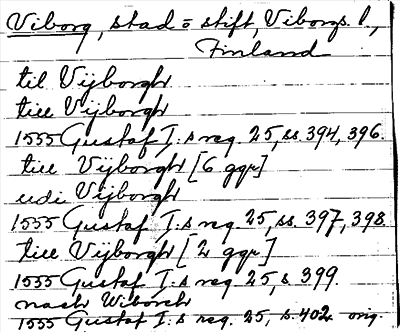 Viborg, stad o stift, Viborgs l.,
Finland
til Vijborgh
till Vijborgh
1555 Gustaf I:s reg. 25, ss. 394, 396.
till Vijborgh [6 ggr]
udi Vijborgh
1555 Gustaf I:s reg. 25, ss. 397, 398.
till Vijborgh [2 ggr]
1555 Gustaf I:s reg. 25, s. 399.
nach Wiborch
1555 Gustaf I:s reg. 25, s. 402 orig.